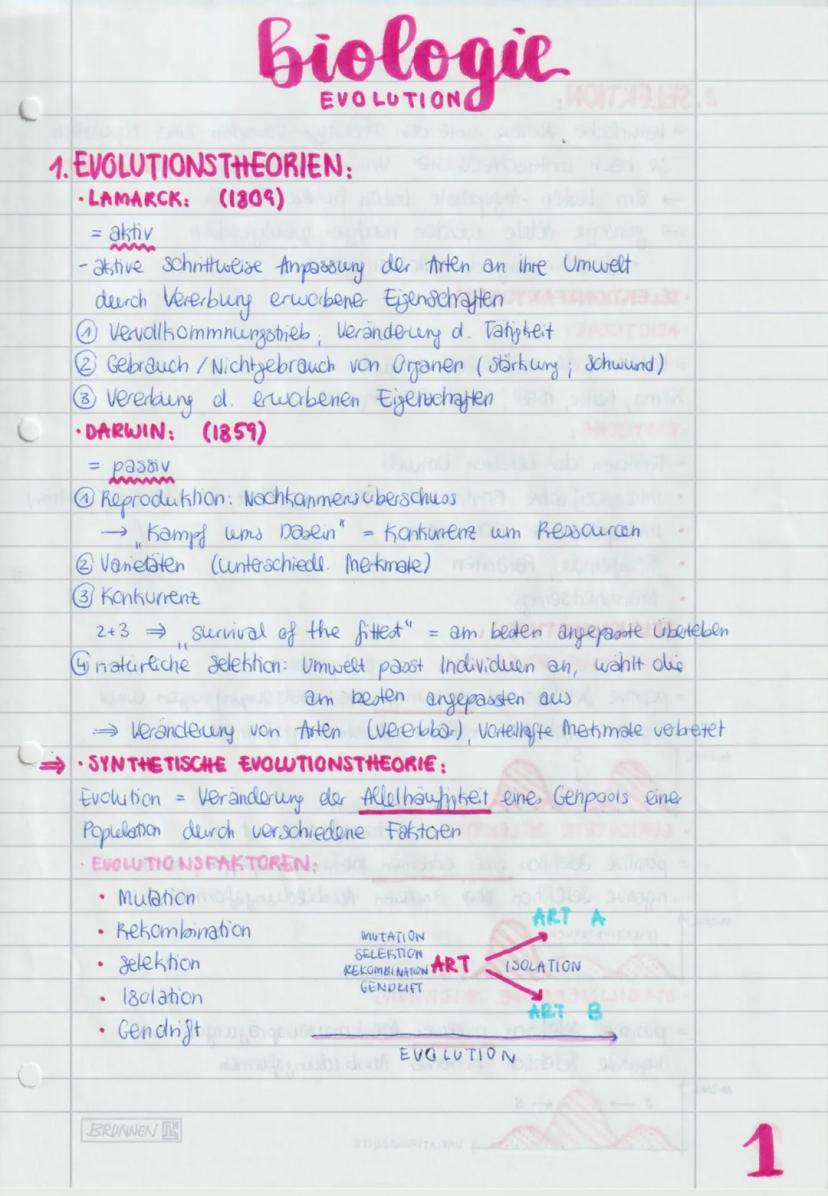 Biologie
EVOLUTION
1. EVOLUTIONSTHEORIEN:
· LAMARCK: (1809)
= aktiv
- aktive schrittweise Anpassung der Arten an ihre Umwelt
durch Vererbung erworbener Eigenschaften
① Vervollkommnungstrieb; Veränderung d. Tätigkeit
② Gebrauch / Nichtgebrauch von Organen (Stärkung; Schwund)
③ Vererbung d. erworbenen Eigenschaften
· DARWIN: (1859)
= passiv
① Reproduktion: Nachkommensüberschuss
→ „Kampf ums Dasein" = Konkurrenz um Ressourcen
② Varietäten (unterschiedl. Merkmale)
③ Konkurrenz
2+3 ⇒ „survival of the fittest" = am besten angepasste überleben
④ natürliche Selektion: Umwelt passt Individuen an, wählt die
am besten angepassten aus
⇒ Veränderung von Arten (vererbbar), vorteilhafte Merkmale verbreitet
⇒ · SYNTHETISCHE EVOLUTIONSTHEORIE:
Evolution = Veränderung der Allelhäufigkeit eines Genpools einer
Population durch verschiedene Faktoren
· EVOLUTIONSFAKTOREN:
• Mutation
• Rekombination
• Selektion
• Isolation
• Gendrift
MUTATION
SELEKTION
REKOMBINATION
GENDRIFT
ART
ART A
ISOLATION
ART B
EVOLUTION
BRUNNEN
1